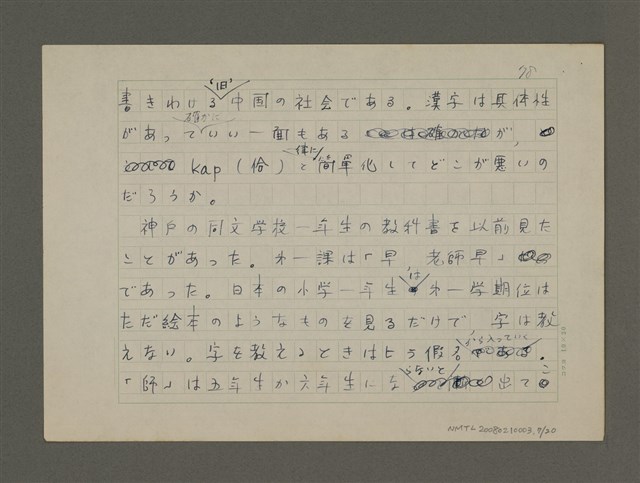 78
書きわける“旧”中国の社会である。漢字は具体性
があって確かにいい一面もあるが,
kap（佮）と一体に簡単化してどこが悪いの
だろうか。
神戸の同文学校一年生の教科書を以前見た
ことがあった。第一課は「早 老師早」
であった。日本の小学一年生は第一学期位は
ただ絵本のようなものを見るだけで 字は教
えない。字を教えるときはヒラ假名から入っていく.
「師」は五年生か六年生にならないと出てこ
NMTL20080210003.9/20